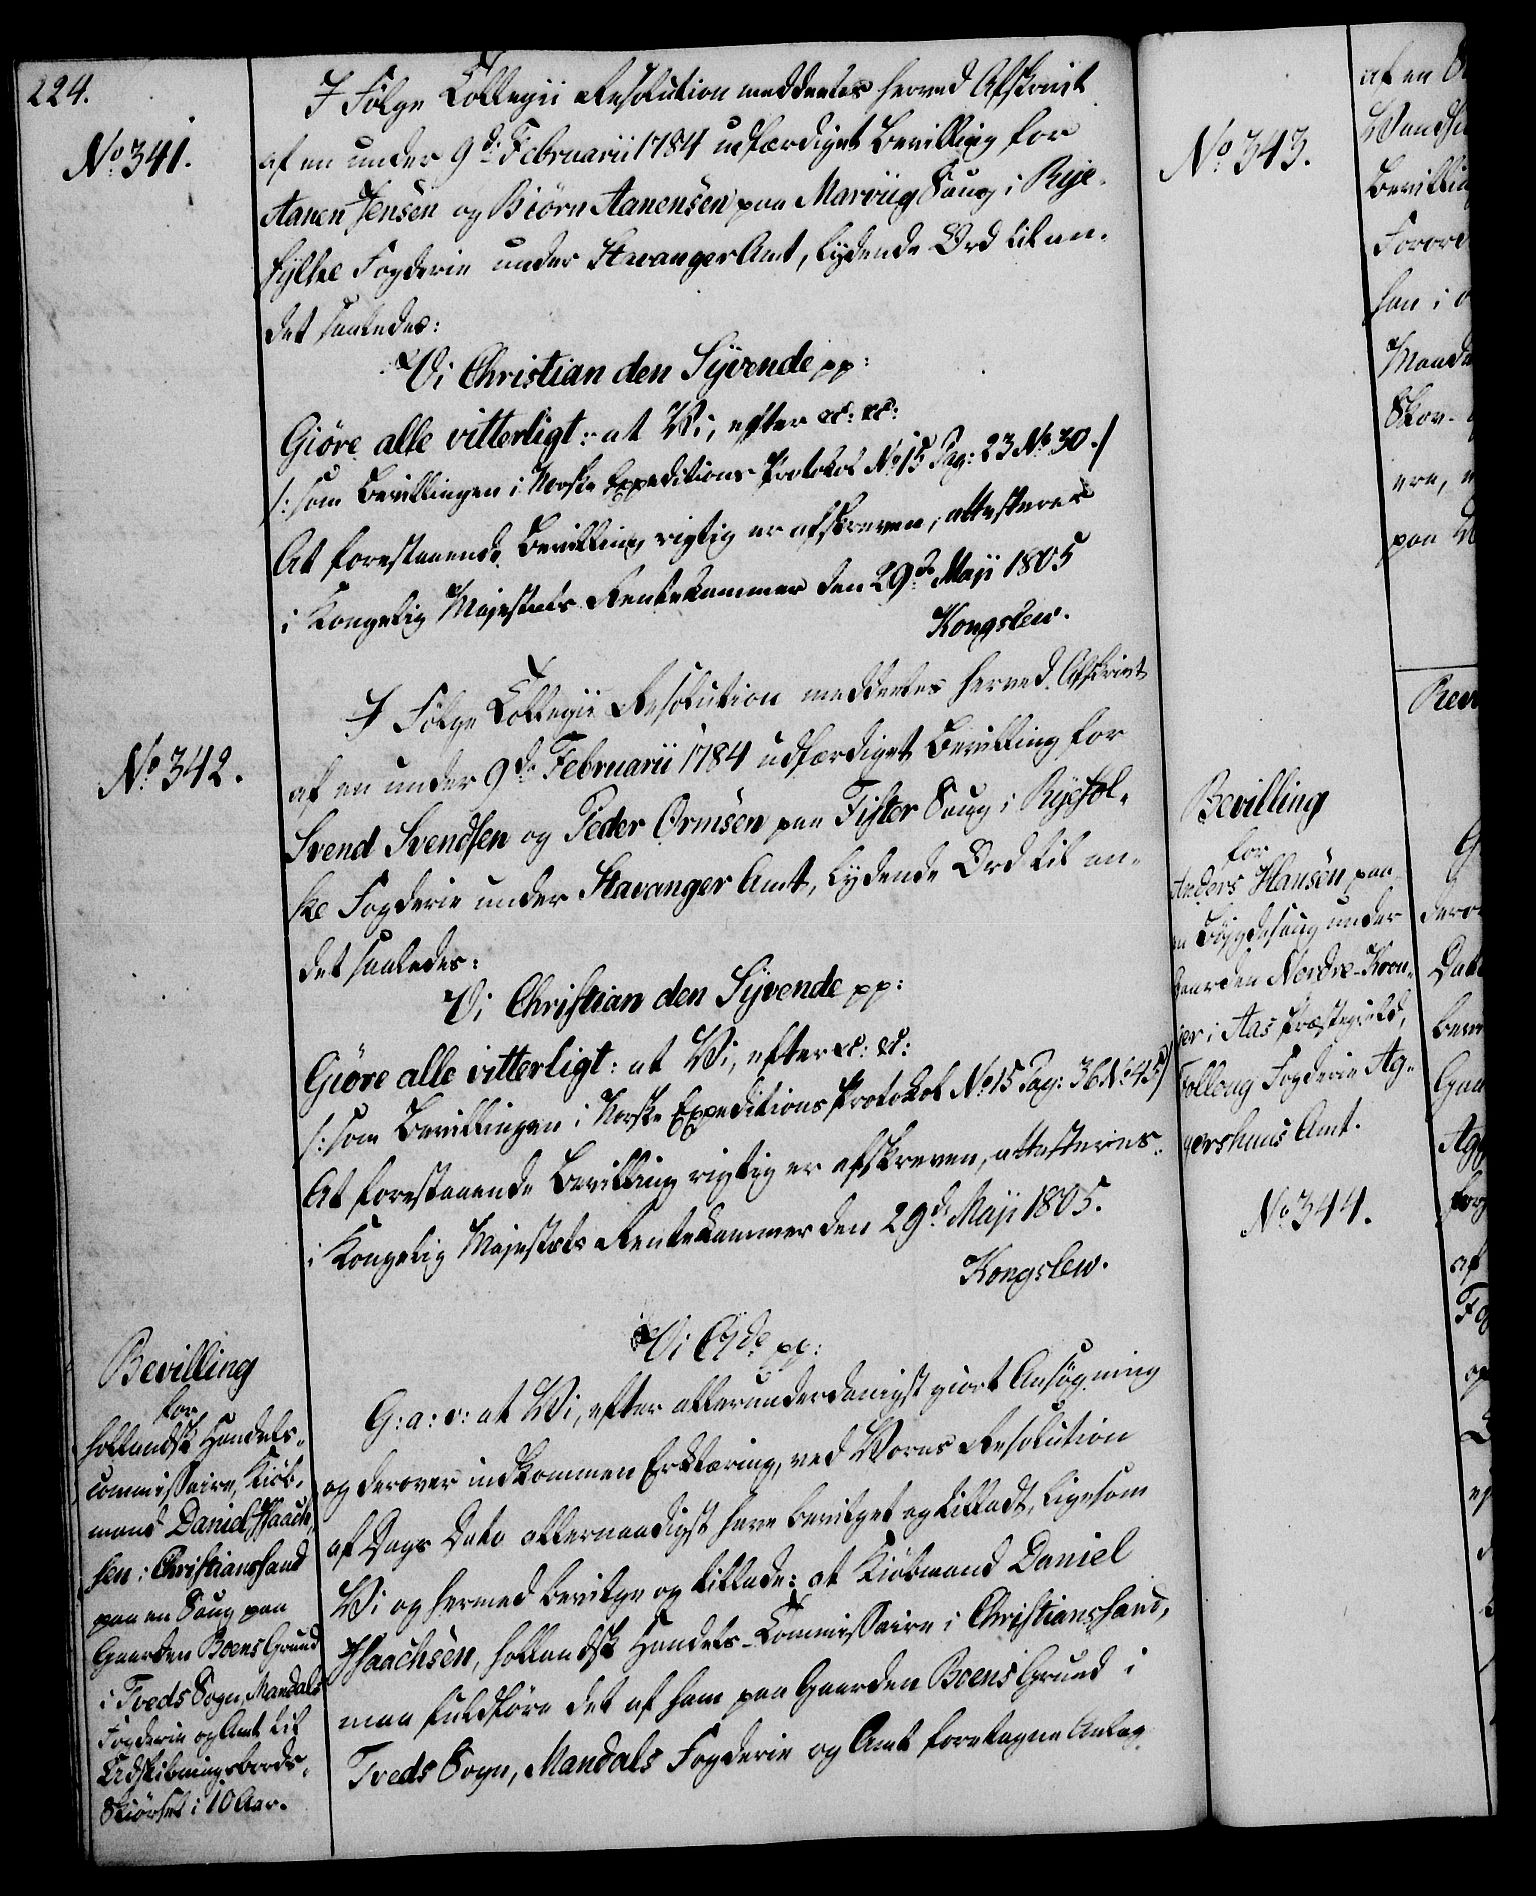 224.
No 341.
I Følge Collegii Resolution meddeeles herved Afskrivt
af en under 9de Februarii 1784 udfærdiget Bevilling for
Aanen Jensen og Biørn Aanensen paa Marvüg Saug i Rye-
fylke Fogderie under Stavanger Amt, lydende Ord til an-
det saaledes:
Vi Christian den Syvende pp:
Giøre alle vitterligt: at Vi, efter etc: etc:
/: som Bevillingen i Norske Expeditions Protokol No 15 Pag: 23 No 30./
At forestaaende Bevilling rigtig er afskreven, attesteres
i Kongelig Majestæts Rentekammer den 29de Maji 1805
Kongslew.
No 342.
I Følge Collegii Resolution meddeeles herved Afskrivt
af en under 9de Februarii 1784 udfærdiget Bevilling for
Svend Svendsen og Peder Ormsen paa Fister Saug i Ryefol-
ke Fogderie under Stavanger Amt, lydende Ord til an-
det saaledes:
Vi Christian den Syvende pp:
Giøre alle vitterligt: at Vi, efter etc: etc:
/: som Bevillingen i Norske Expeditions Protokol No 15 Pag: 36 No 45/
At forestaaende Bevilling rigtig er afskreven, attesteres
i Kongelig Majestæts Rentekammer den 29de Maji 1805.
Kongslew.
Bevilling
for
hollandsk Handels-
commissaire, Kiøb-
mand Daniel Isaach-
sen i Christianssand
paa en Saug paa
Gaarden Boens Grund
i Tveds Sogn, Mandals
Fogderie og Amt til
Udskibningsbords-
Skiørsel i 10 Aar.
Vi C 7de pp:
G: a: v: at Vi, efter allerunderdanigst giort Ansøgning
og derover indkommen Erklæring, ved Vores Resolution
af Dags Dato allernaadigst have bevilget og tilladt, ligesom
Vi og hermed bevilge og tillade: at Kiøbmand Daniel
Isaachsen, hollandsk Handels-Commissaire i Christianssand,
maa fuldføre det af ham paa Gaarden Boens Grund i
Tveds Sogn, Mandals Fogderie og Amt foretagne Anlæg
No 343.
Bevilling
for
Anders Hansen paa
en Bøygdesaug under
Gaarden Nordre-Kroe-
er i Aas Præstegield,
Folloug Fogderie Ag-
gershuus Amt.
No 344.
af en
Bevilling
Forord
han i
Maade
Skov-
ere,
paa
af